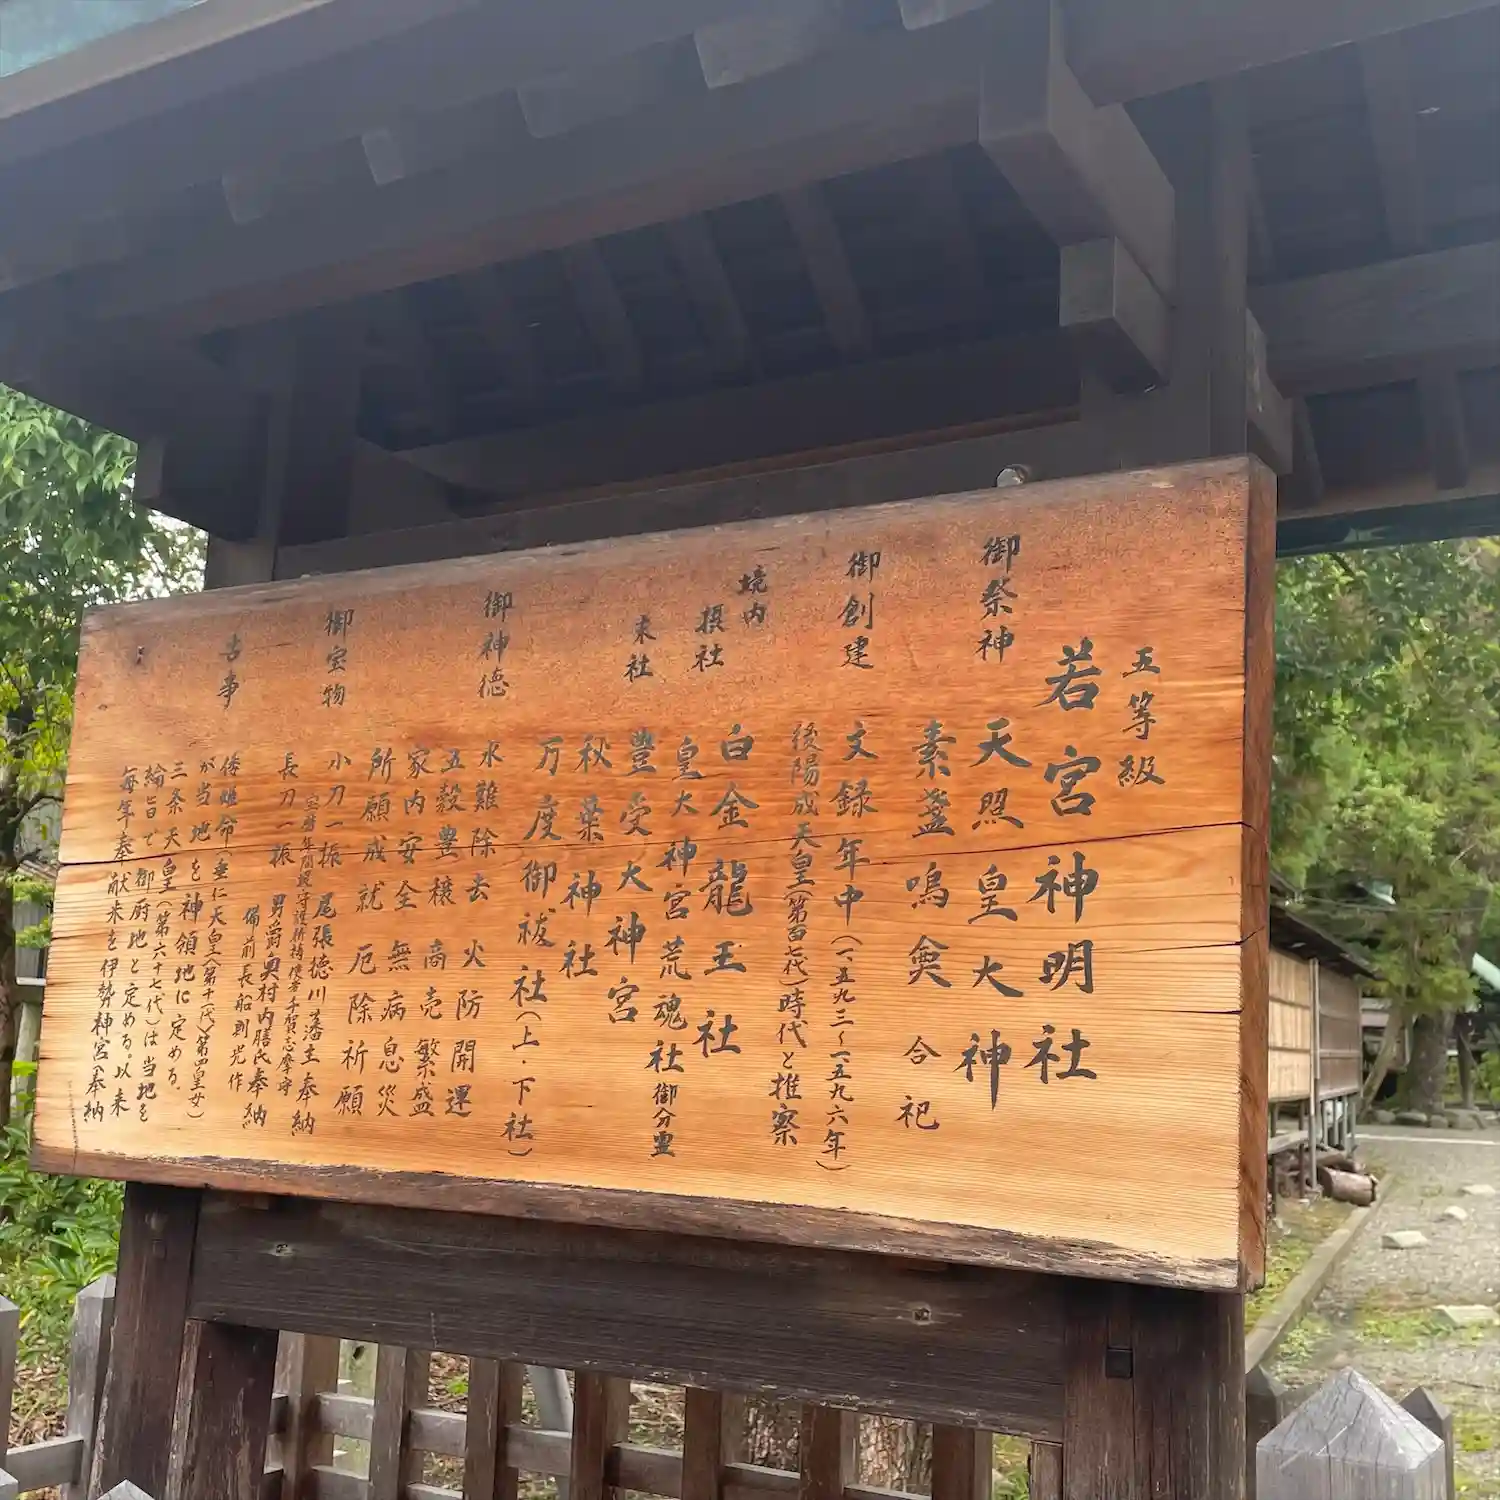 五等級
若宮神明社
御祭神 天照皇大神
素盞嗚尊 合祀
御創建 文録年中（一五九三～一五九六年）
後陽成天皇（第百七代）時代と推察
境内
摂社 白金龍王社
皇大神宮荒魂社 御分霊
末社 豊受大神宮
秋葉神社
万度御祓社（上・下社）
御神徳 水難除去 火防開運
五穀豊穣 商売繁盛
家内安全 無病息災
所願成就 厄除祈願
御宝物 小刀一振 尾張徳川藩主奉納
（宝暦年間
長刀一振 男爵奥村内膳氏奉納
備前長船則光作
古事 倭姫命（垂仁天皇（第十一代）第四皇女）
が当地を神領地に定める。
三条天皇（第六十七代）は当地を
綸旨で御厨地と定める。以来
毎年奉献米を伊勢神宮へ奉納